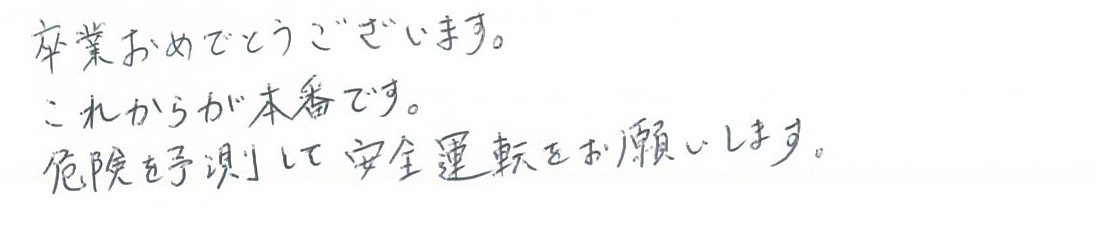 卒業おめでとうございます。
これからが本番です。
危険を予測して安全運転をお願いします。